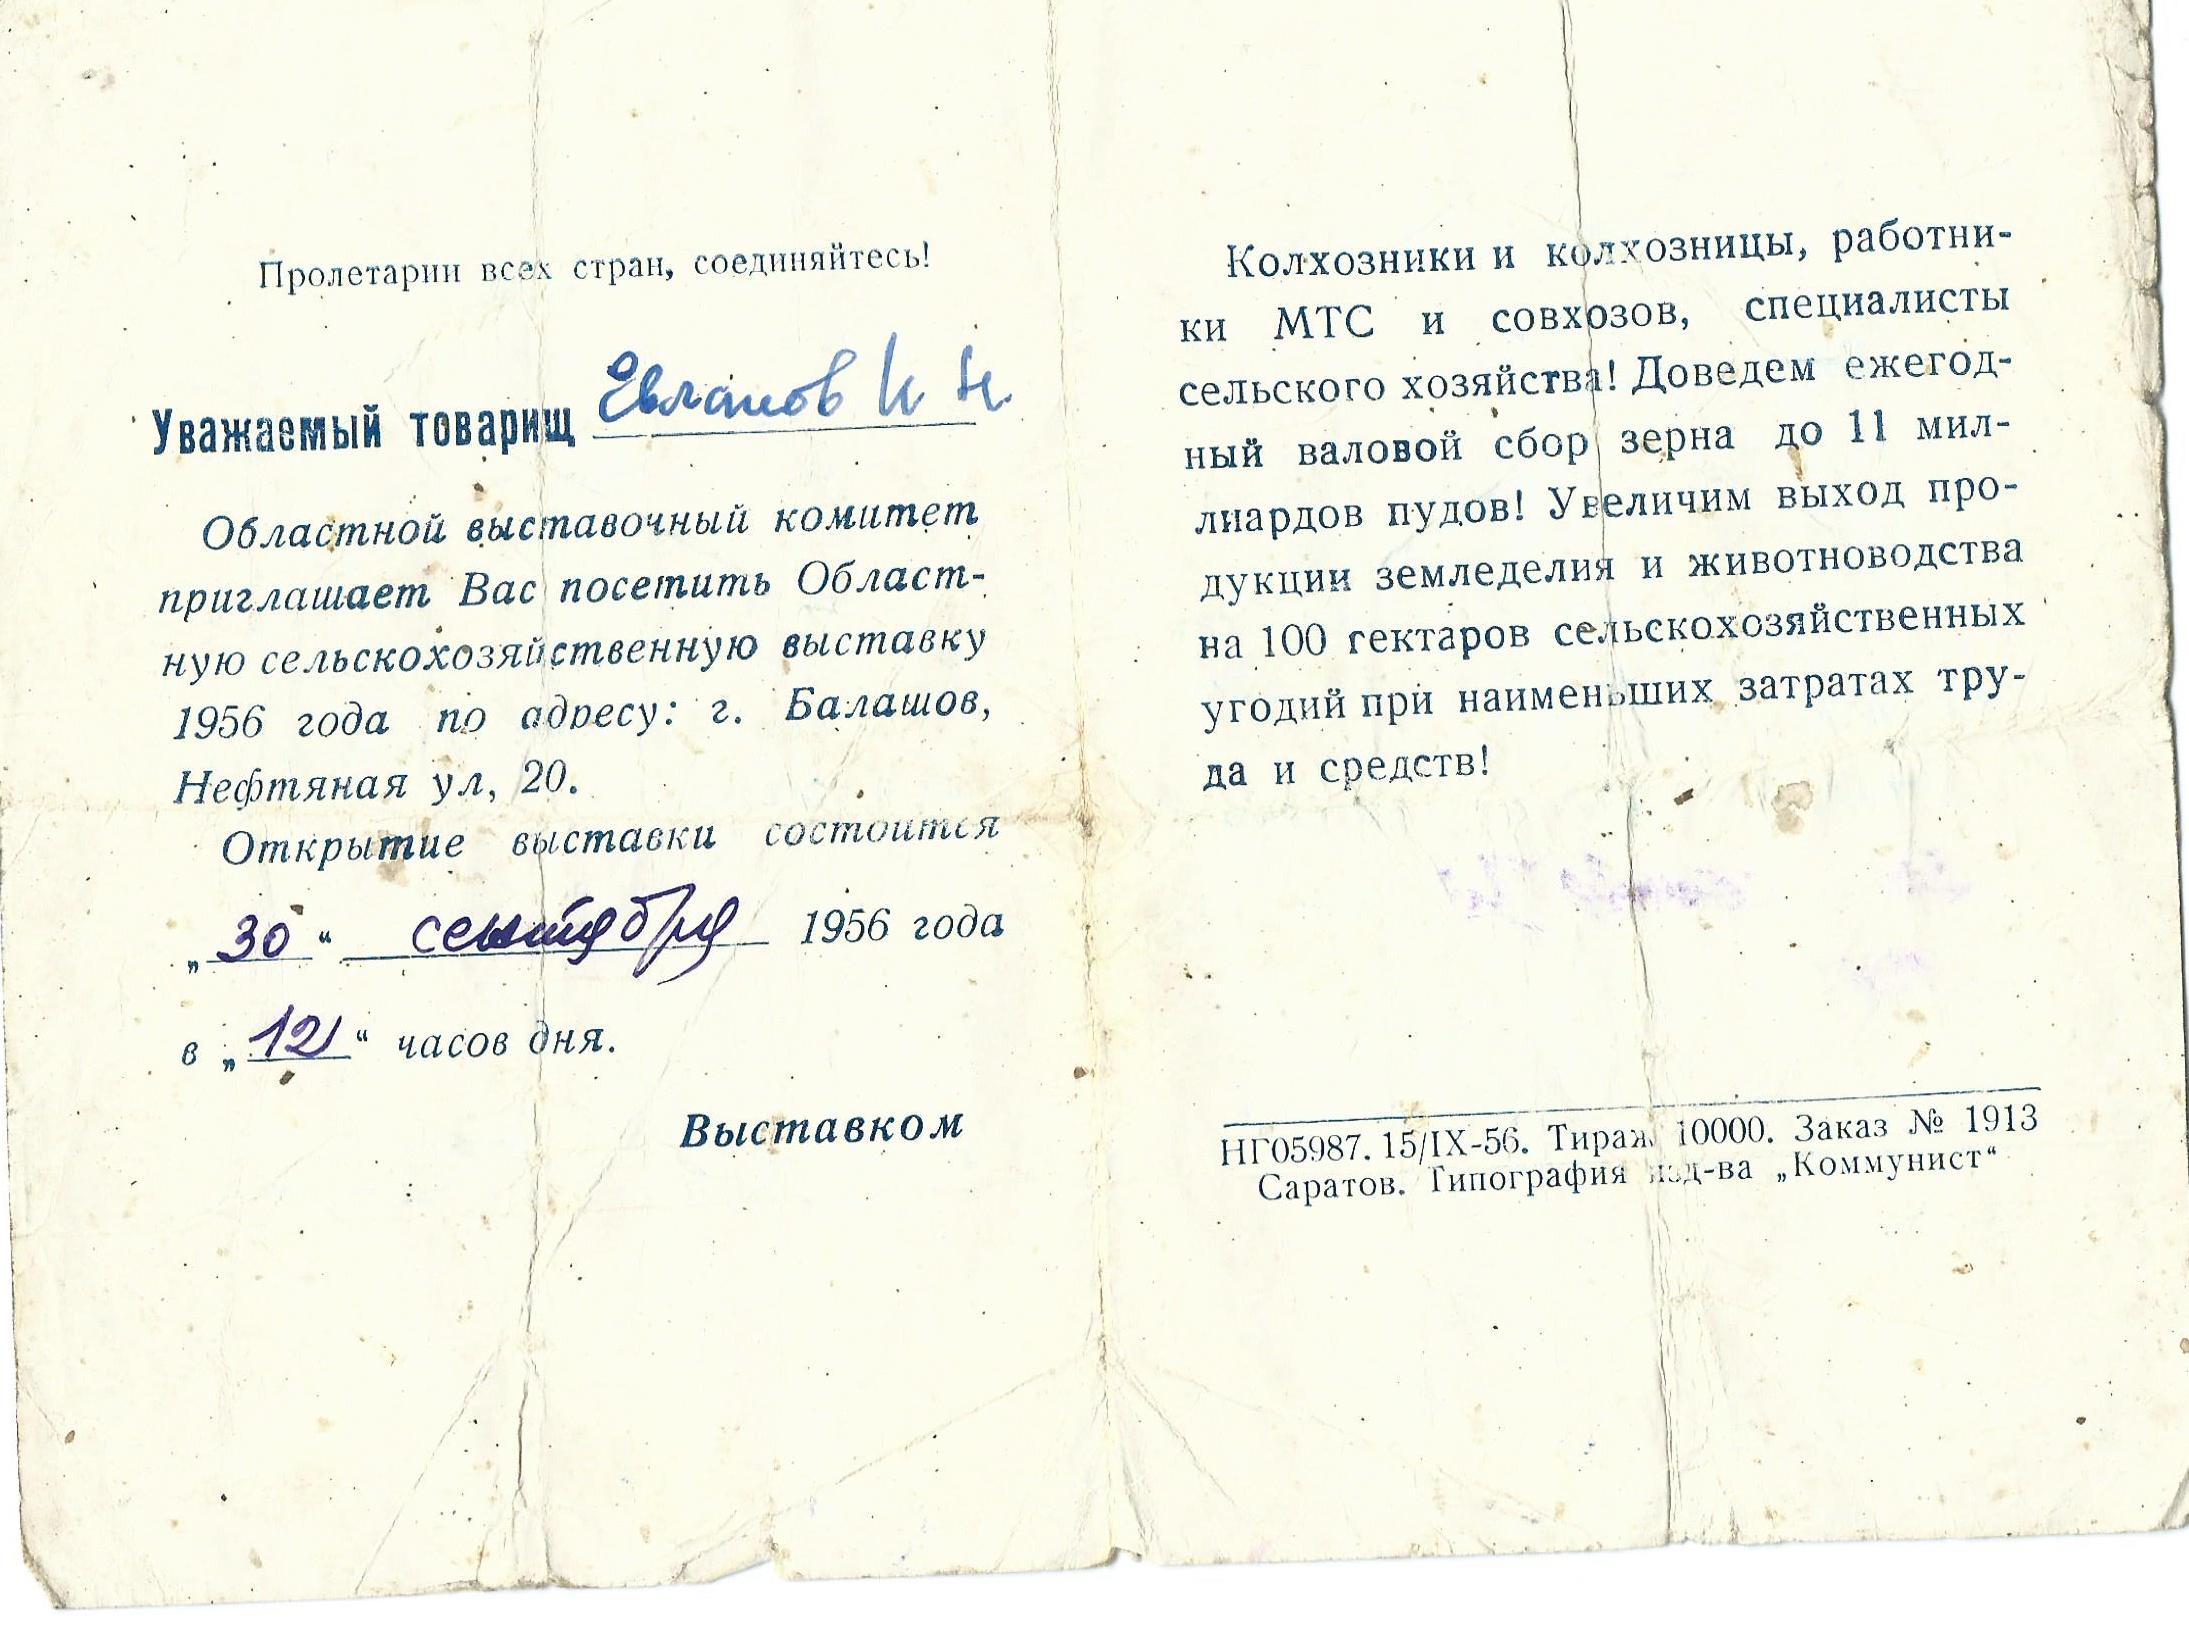 Пролетарии всех стран, соединяйтесь!
Уважаемый товарищ Евланов И. Н.
Областной выставочный комитет
приглашает Вас посетить Област-
ную сельскохозяйственную выставку
1956 года по адресу: г. Балашов,
Нефтяная ул, 20.
Открытие выставки состоится
„30“ сентября 1956 года
в „12“ часов дня.
Выставком
Колхозники и колхозницы, работни-
ки МТС и совхозов, специалисты
сельского хозяйства! Доведем ежегод-
ный валовой сбор зерна до 11 мил-
лиардов пудов! Увеличим выход про-
дукции земледелия и животноводства
на 100 гектаров сельскохозяйственных
угодий при наименьших затратах тру-
да и средств!
НГ05987. 15/IX-56. Тираж 10000. Заказ № 1913
Саратов. Типография изд-ва „Коммунист“